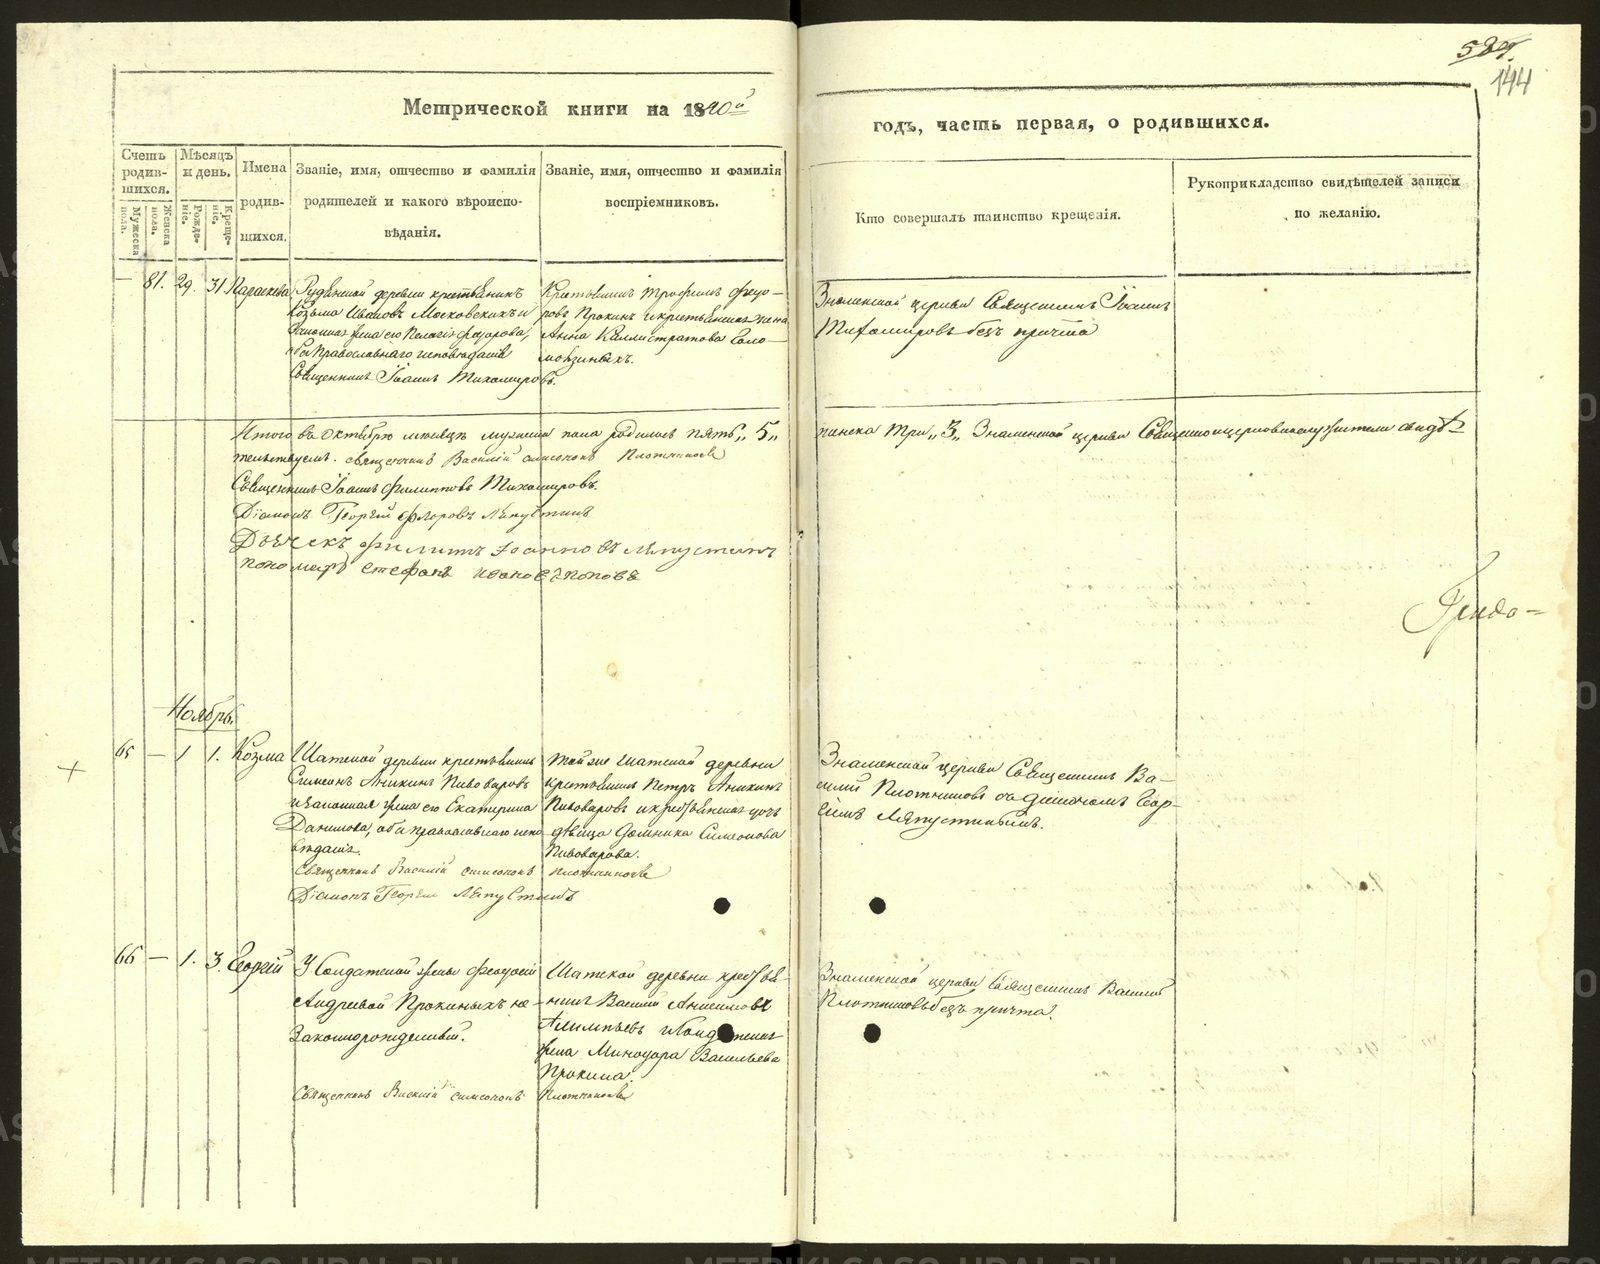 589.
144
Метрической книги на 1870й
годъ, часть первая, о родившихся.
Счетъ родив-шихся.
Мужеска пола.
Женска пола.
Мѣсяцъ и день.
Рожде-ніе.
Креще-ніе.
Имена родив-шихся.
Званіе, имя, отчество и фамилія родителей и какого вѣроиспо-вѣданія.
Званіе, имя, отчество и фамилія воспріемниковъ.
Кто совершалъ таинство крещенія.
Рукоприкладство свидѣтелей записи по желанію.
— 81. 29. 31 Параскева
деревни крестьянинъ
Козьма Ивановъ Московскихъ и
законная жена его Пелагія Федорова,
оба Православнаго исповѣданія
Священникъ Іоаннъ Тихомировъ.
Крестьянинъ Трофимъ Федо-
ровъ Прокинъ и крестьянская жена
Анна Каллистратова Соло-
Знаменской церкви Священникъ Іоаннъ
Тихомировъ безъ причта
Итого въ октябрѣ мѣсяцѣ мужеска пола родилось пять „5„
женска три „3„ Знаменской церкви Священноцерковнослужители свидѣ-
тельствуемъ. священникъ Василій Симеоновъ Плотниковъ
Священникъ Іоаннъ Филипповъ Тихомировъ.
Діаконъ Георгій Флоровъ Ляпустинъ
Дьячекъ Филиппъ Іоанновъ Ляпустинъ
пономарь Стефанъ Ивановъ Поповъ
Ноябрь.
65 — 1 1. Козма
Шатской деревни крестьянинъ
Симеонъ Аникинъ Пивоваровъ
и законная жена его Екатерина
Данилова, оба православнаго испо-
вѣданія.
Священникъ Василій Симеоновъ Плотниковъ
Діаконъ Георгій Ляпустинъ
Той же Шатской деревни
крестьянинъ Петръ Аникинъ
Пивоваровъ и крестьянская дочь
дѣвица Домника Симеонова
Пивоварова.
Знаменской церкви Священникъ Ва-
силій Плотниковъ съ діакономъ Геор-
гіемъ Ляпустинымъ.
66 — 1. 3. Георгій
У Солдатской жены Феодосіи
Андреевой Прокиныхъ не-
законнорожденный.
Священникъ Василій Симеоновъ Плотниковъ
Шатской деревни крестья-
нинъ Василій Анисимовъ
Алимпьевъ и солдатская
жена Минодора Васильева
Прокина.
Знаменской церкви Священникъ Василій
Плотниковъ безъ причта.